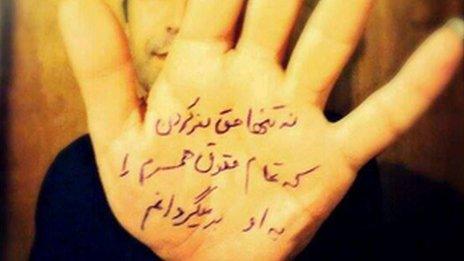 نه تنها حق سفر کردن
که تمام حقوق همسرم را
به او برمیگردانم